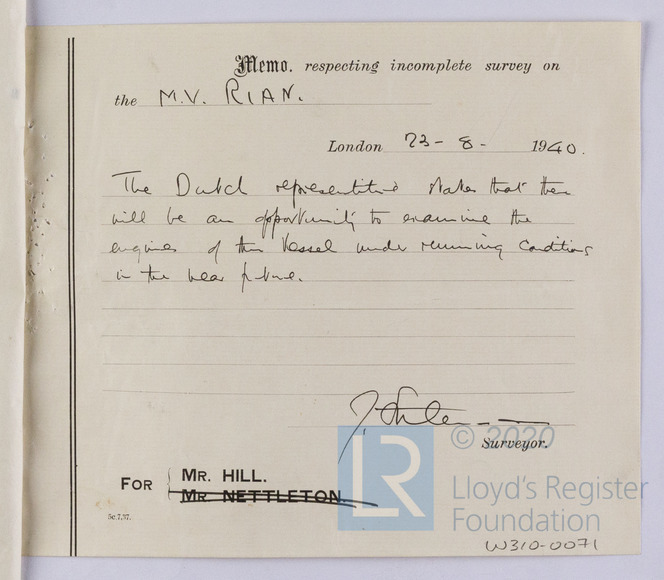 Memo. respecting incomplete survey on
the M.V. RIAN.
London 23-8- 1940.
The Dutch representative states that there
will be an opportunity to examine the
engines of this vessel under running conditions
in the near future.
Surveyor.
FOR MR. HILL.
MR NETTLETON.
5c.7,37.
LR © 2020
Lloyd's Register
Foundation
W310-0071